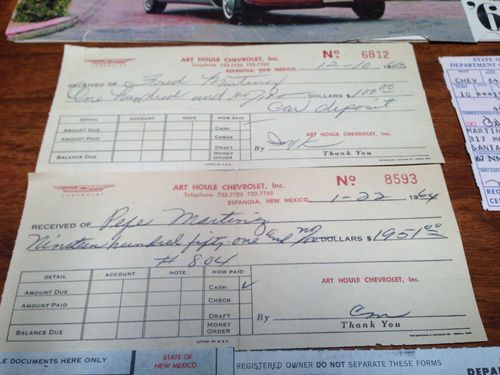 '6
CHEVROLET
ART HOULE CHEVROLET, Inc.
Telephone 753-7755 753-7765
ESPANOLA, NEW MEXICO,
No 6812
12-10 1963
RECEIVED OF Fred Martinez
One hundred and no/00 DOLLARS $100.00
Car deposit
DETAIL ACCOUNT NOTE HOW PAID
AMOUNT DUE CASH
AMOUNT PAID CHECK
DRAFT
BALANCE DUE MONEY ORDER
ART HOULE CHEVROLET, Inc.
By
Thank You
STATE O
DEPARTMENT O
CHEV
MARTI
317
SANTA
CHEVROLET
ART HOULE CHEVROLET, Inc.
Telephone 753-7755 753-7765
ESPANOLA, NEW MEXICO,
No 8593
1-22 1964
RECEIVED OF Pepe Martinez
Nineteen hundred fifty-one and no/00 DOLLARS $1951.00
# 804
DETAIL ACCOUNT NOTE HOW PAID
Amount Due CASH ✓
Amount Paid CHECK
DRAFT
Balance Due MONEY ORDER
ART HOULE CHEVROLET, Inc.
By
Thank You
LE DOCUMENTS HERE ONLY
STATE OF
NEW MEXICO
REGISTERED OWNER DO NOT SEPARATE THESE FORMS
DEPA